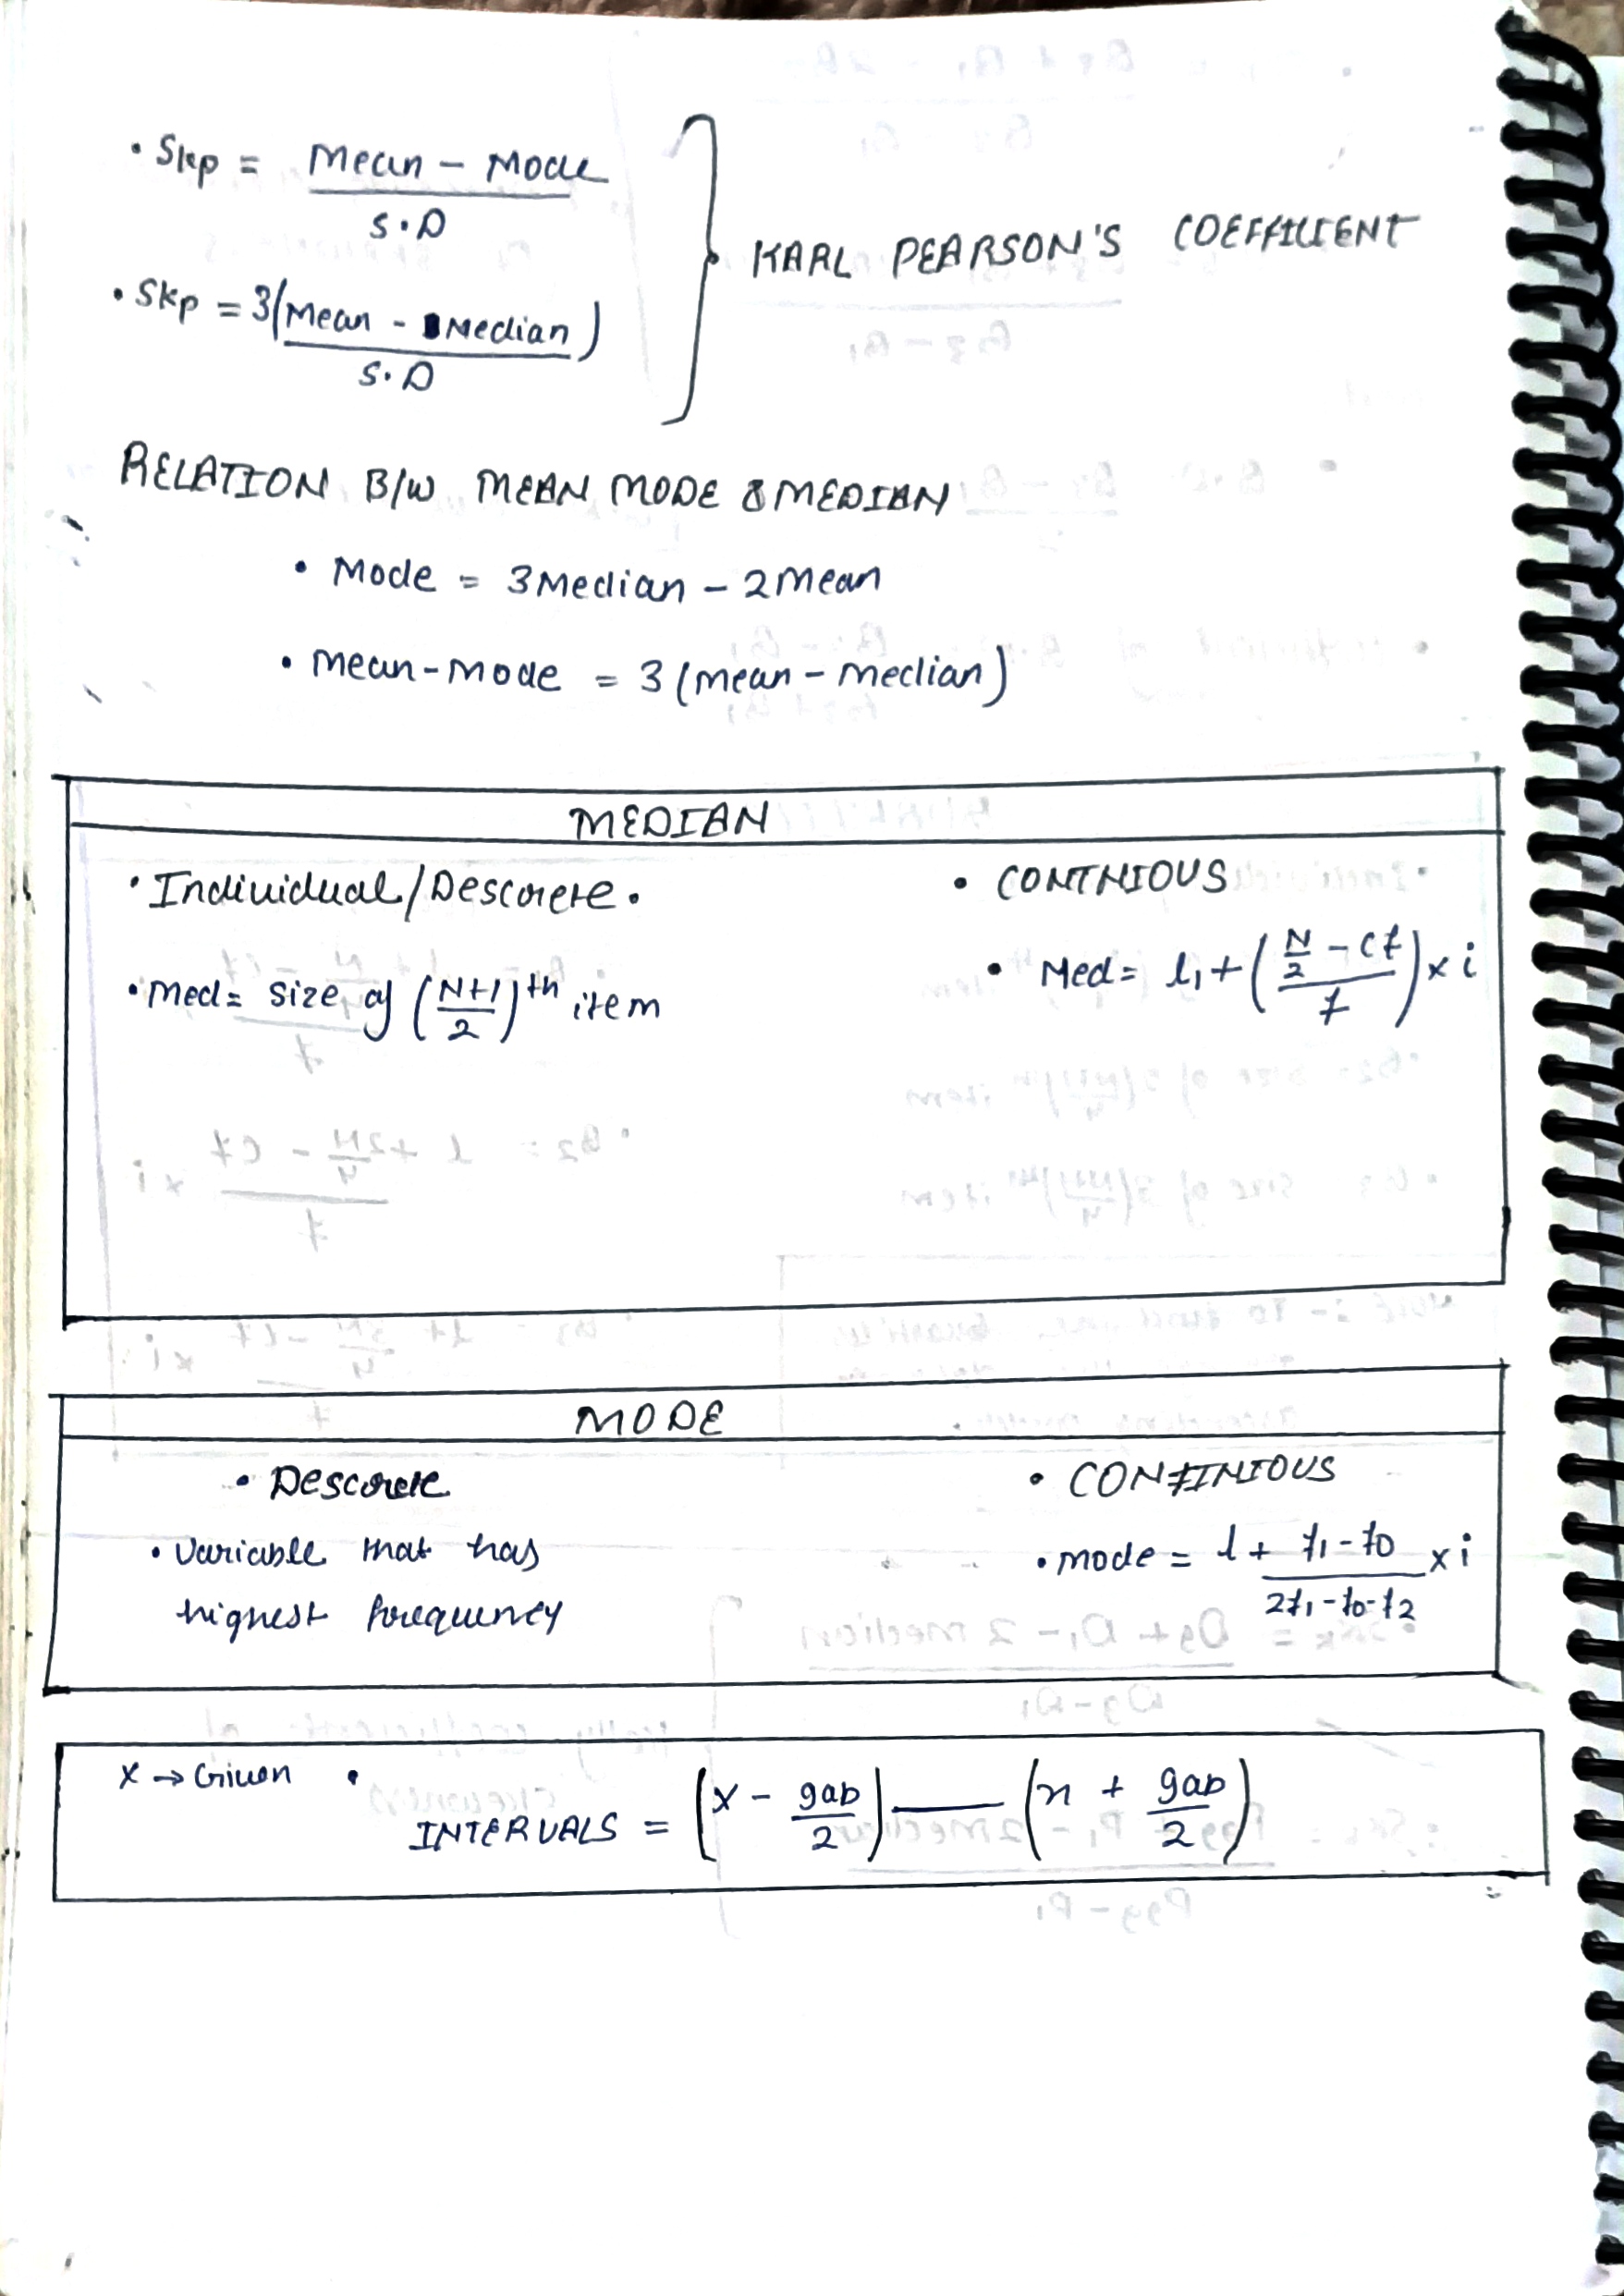 • Skp = Mean - Mode
S.D
• Skp = 3(Mean - Median)
S.D
KARL PEARSON'S COEFFICIENT
RELATION B/W MEAN MODE & MEDIAN
• Mode = 3 Median - 2 Mean
• Mean - Mode = 3 (Mean - Median)
MEDIAN
• Individual/Descrete.
• Med = size of (N+1/2)th item
• CONTNIOUS
• Med = l₁ + (N/2 - cf / f) × i
MODE
• Descrete
• Variable that has
highest frequency
• CONTINIOUS
• Mode = l + f₁ - f₀ × i
2f₁ - f₀ - f₂
X → Given •
INTERVALS = (X - gap/2) — (x + gap/2)